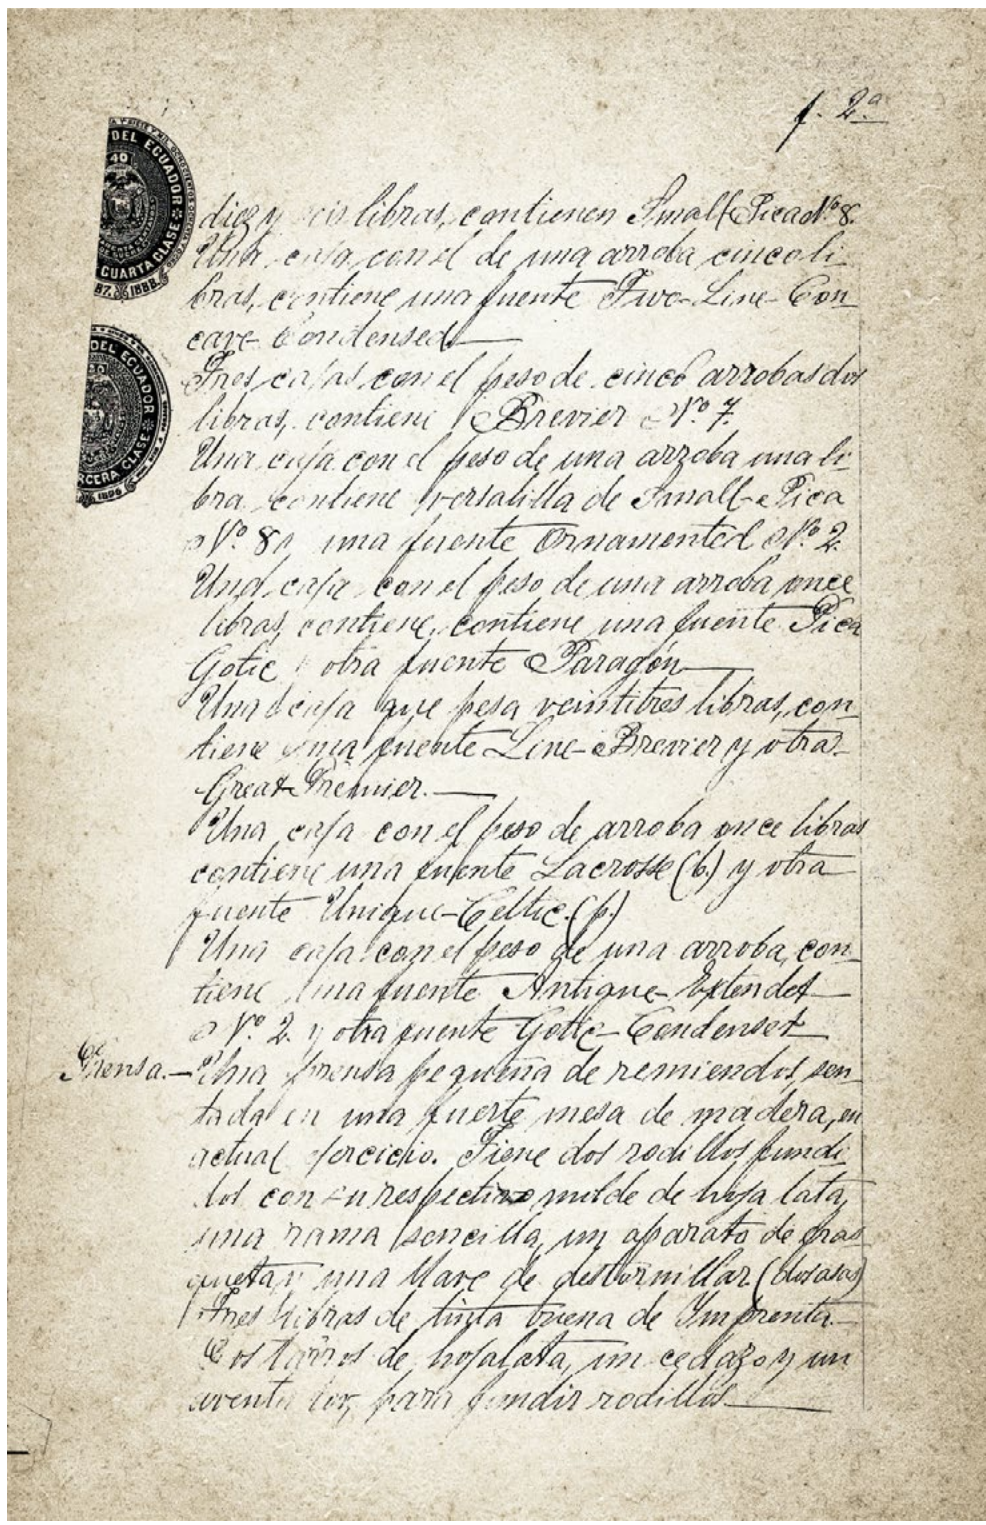 f. 2ª
DEL ECUADOR
40
CUARTA CLASE
87. 1888.
DEL ECUADOR
RCERA CLASE
1896
diez y seis libras, contienen Small-Pica Nº 8.
Una caja con el de una arroba cinco li-
bras, contiene una fuente Two-Line-Con-
cave Condensed.
Tres cajas con el peso de cinco arrobas dos
libras, contiene Brevier Nº 7.
Una caja con el peso de una arroba una li-
bra contiene versalilla de Small-Pica
Nº 8 una fuente Ornamented Nº 2.
Una caja con el peso de una arroba once
libras, contiene, contiene una fuente Pica
Gotic y otra fuente Paragón.
Una caja que pesa veintitres libras, con-
tiene una fuente Line-Brevier y otra
Great Premier.
Una caja con el peso de arroba once libras
contiene una fuente Lacrosse (b.) y otra
fuente Unique-Celtic. (p.)
Una caja con el peso de una arroba, con-
tiene una fuente Antique-Extendet
Nº 2. y otra fuente Gotic-Condenset
Prensa.- Una prensa pequeña de remiendos, sen-
tada en una fuerte mesa de madera, en
actual ejercicio. Tiene dos rodillos fundi-
dos con su respectivo molde de hoja lata,
una rama sencilla, un aparato de fras-
queta y una llave de destornillar
Tres libras de tinta buena de Imprenta.
Dos tarros de hojalata, un cedazo y un
aventador, para fundir rodillos.